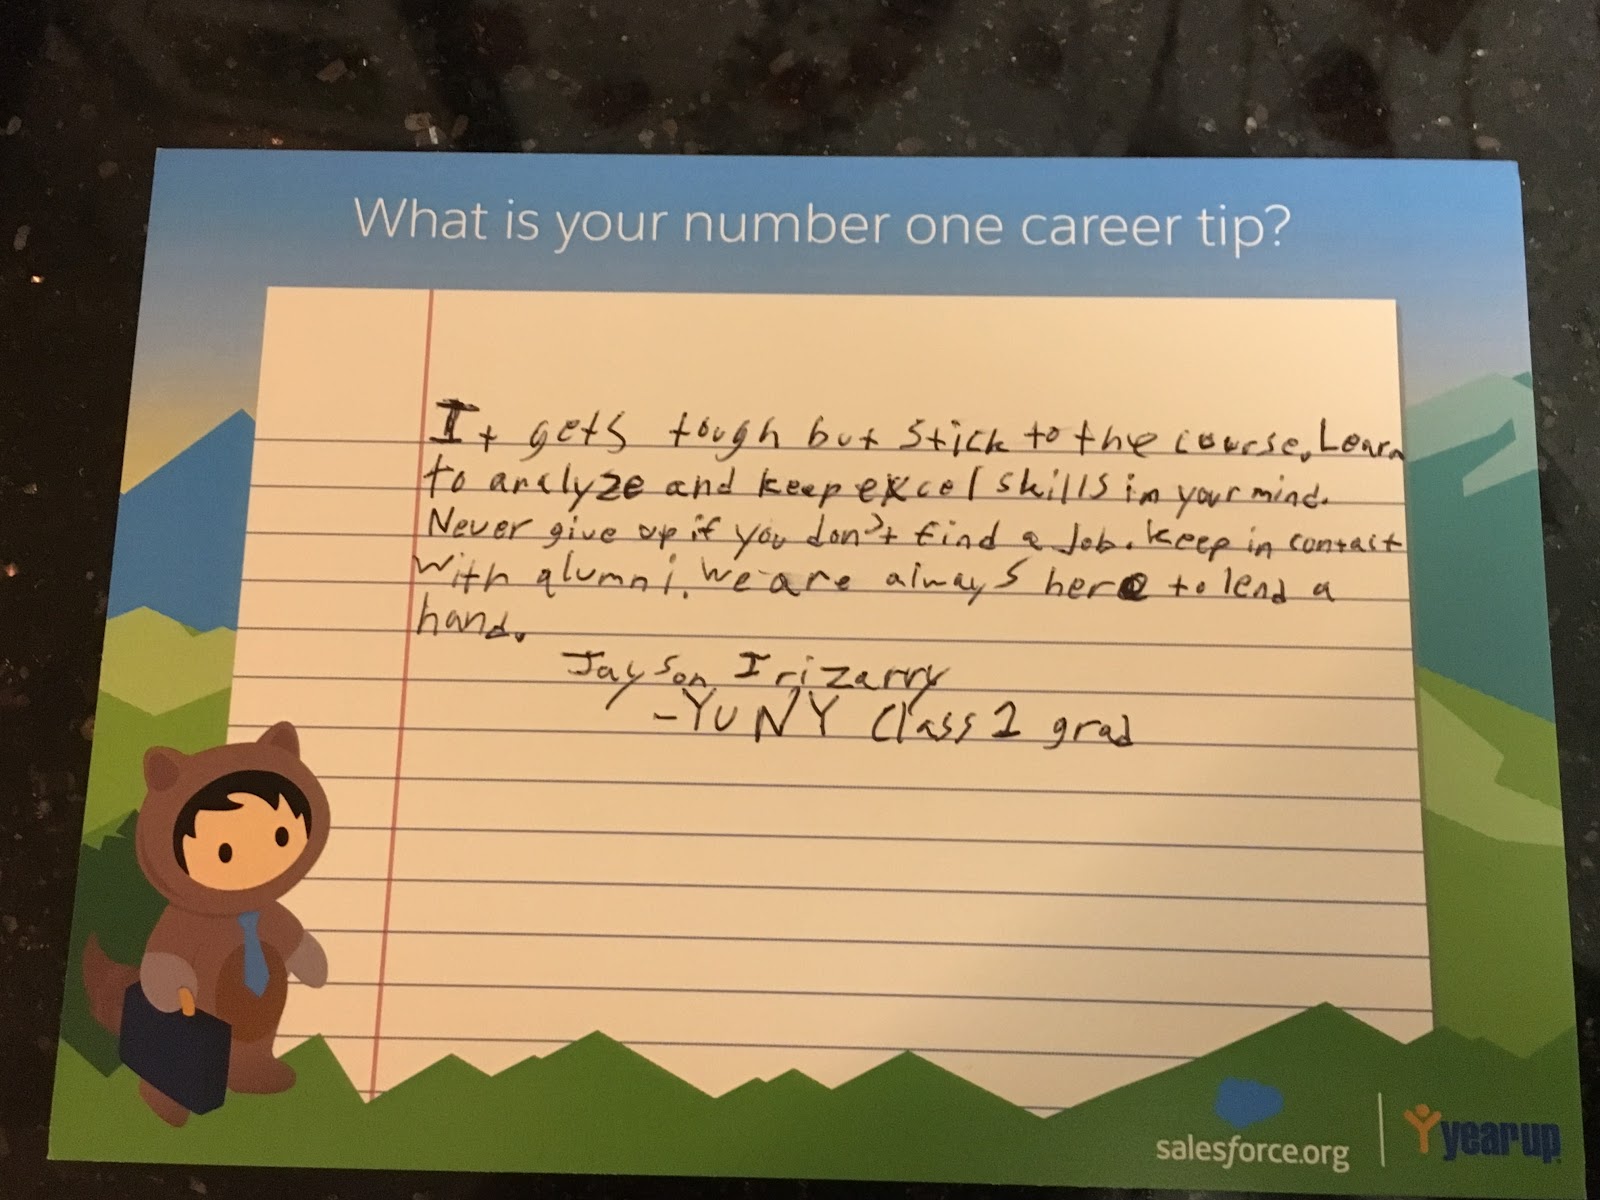 What is your number one career tip?
It gets tough but stick to the course. Learn
to analyze and keep excel skills in your mind.
Never give up if you don't find a Job. keep in contact
with alumni. We are always here to lend a
hand.
Jayson Irizarry
-YUNY Class 1 grad
salesforce.org
year up